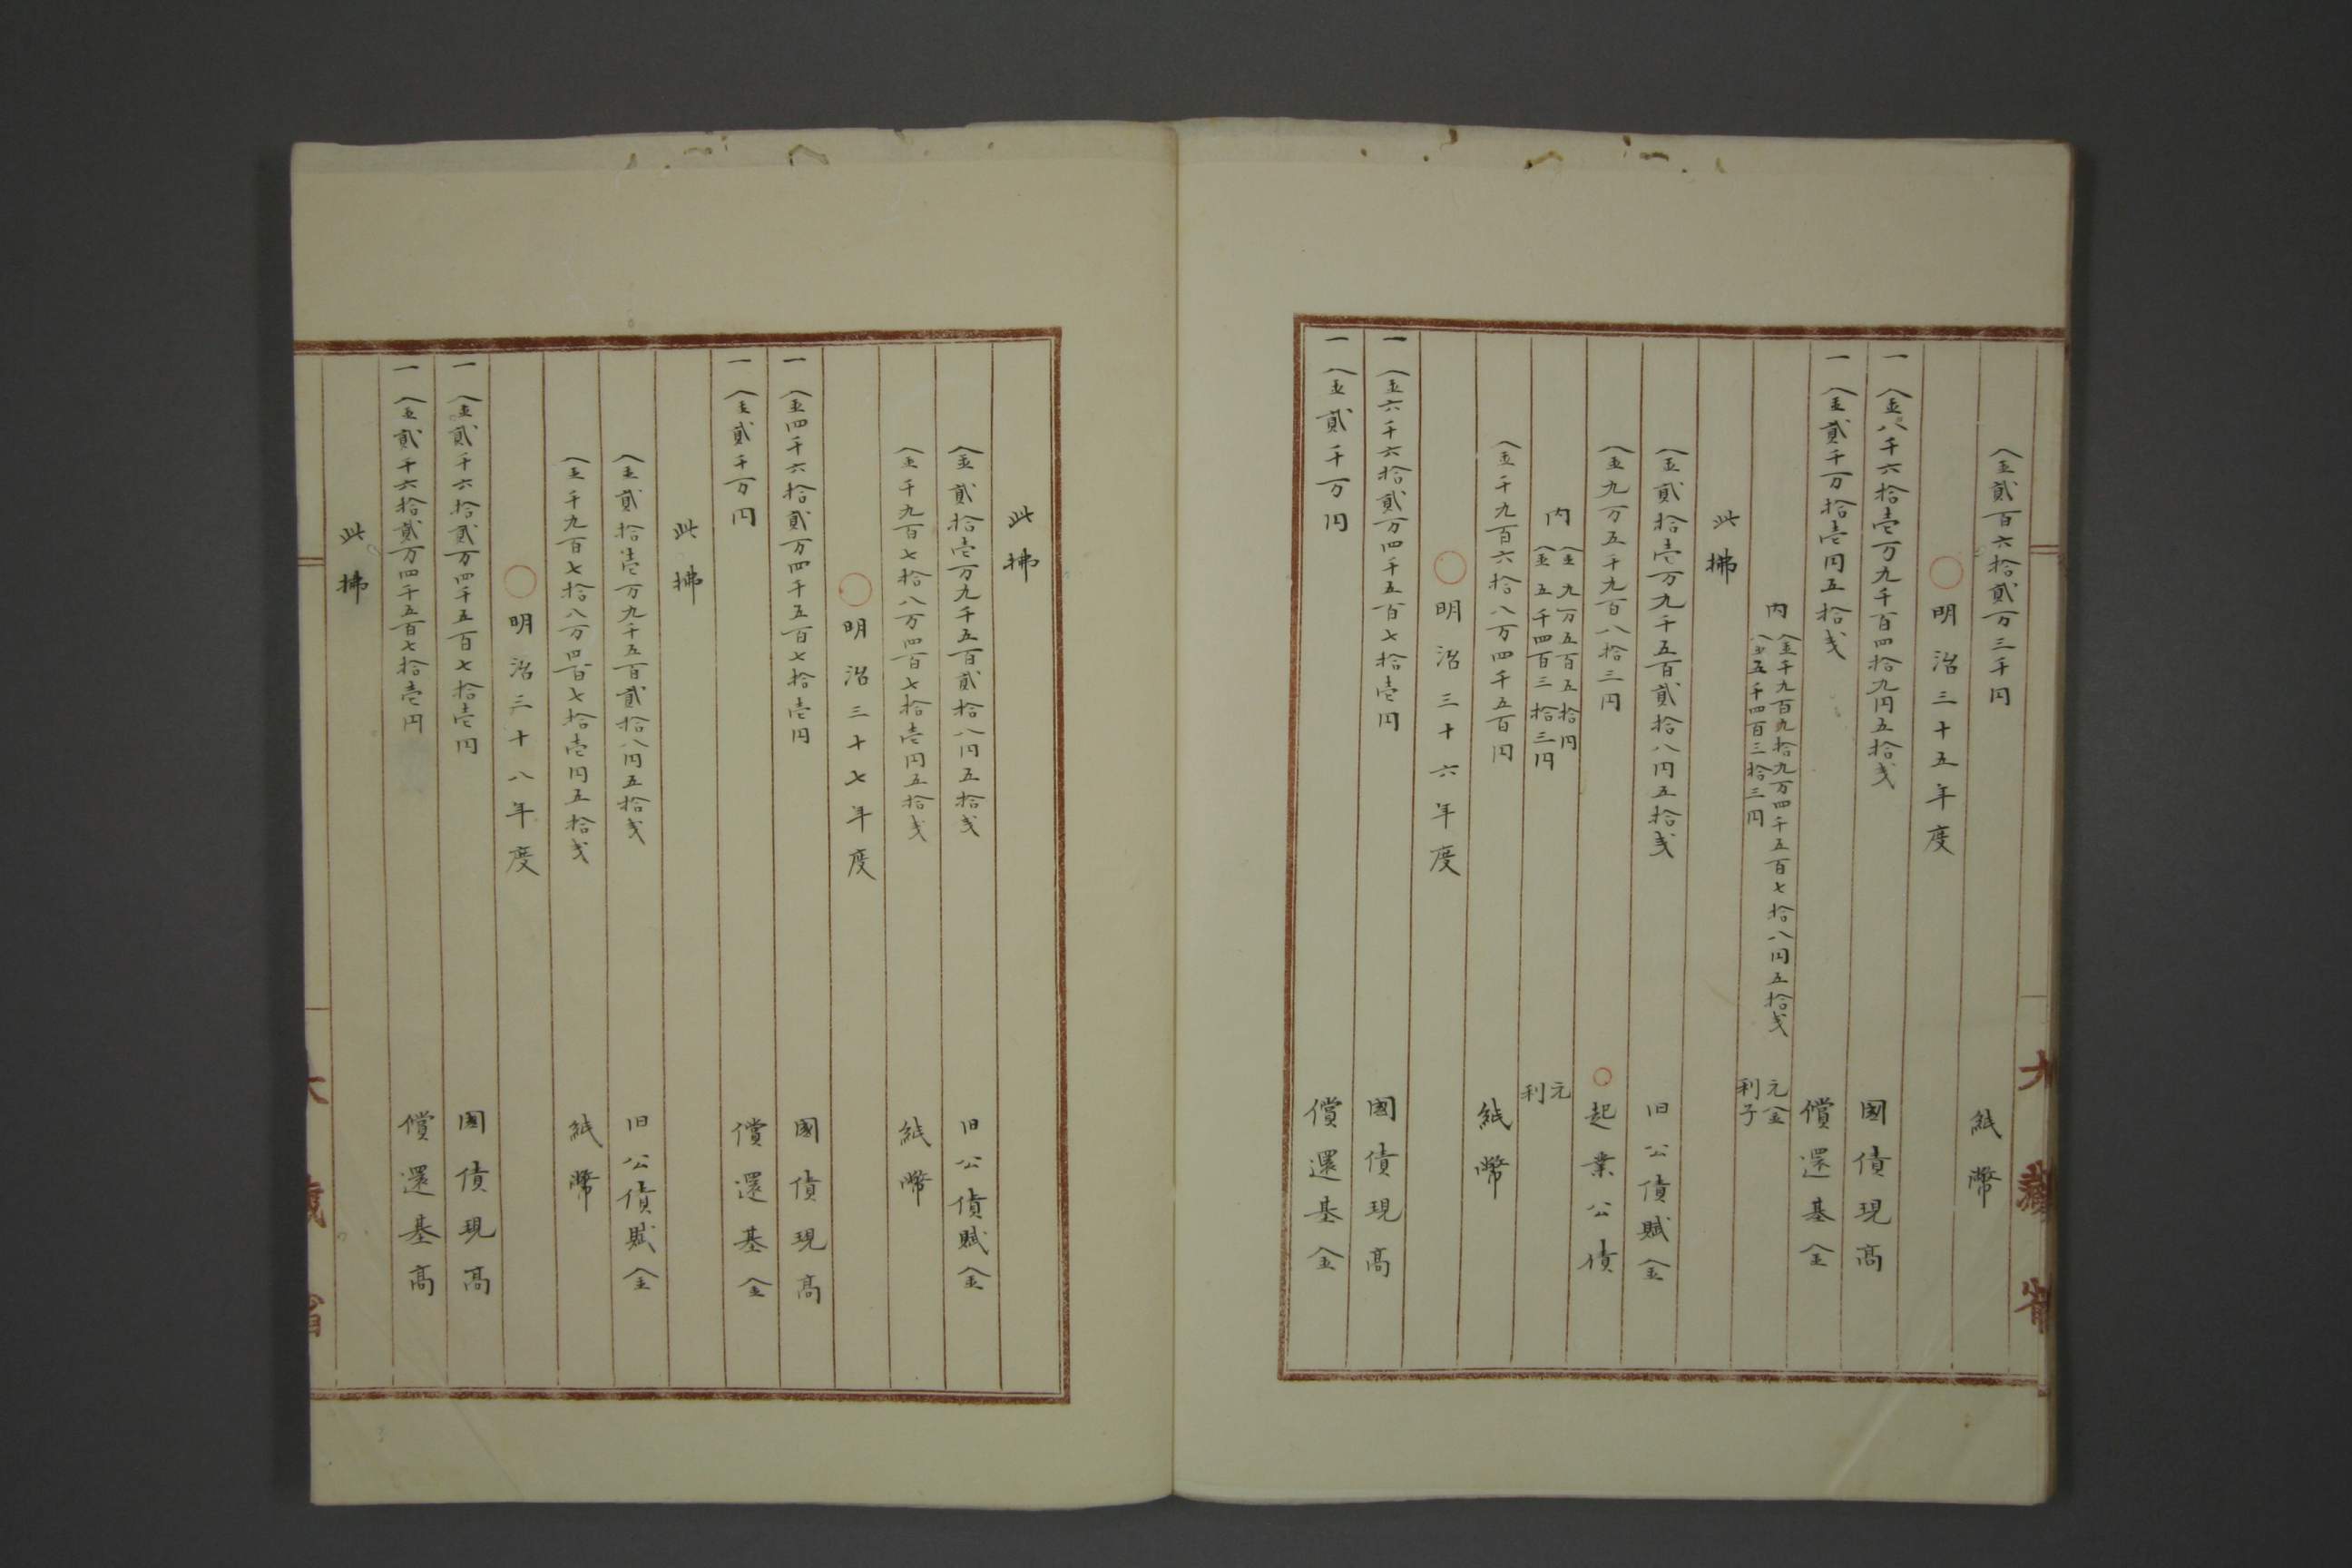 金貳百六拾貳万三千円 紙幣
○明治三十五年度
一金八千六拾壱万九千百四拾九円五拾戋 國債現高
一金貳千万拾壱円五拾戋 償還基金
内 金千九百九拾九万四千五百七拾八円五拾戋 元金
金五千四百三拾三円 利子
此拂
金貳拾壱万九千五百貳拾八円五拾戋 旧公債賦金
金九万五千九百八拾三円 ○起業公債
内 金九万五百五拾円 元
金五千四百三拾三円 利
金千九百六拾八万四千五百円 紙幣
○明治三十六年度
一金六千六拾貳万四千五百七拾壱円 國債現高
一金貳千万円 償還基金
大藏省
此拂
金貳拾壱万九千五百貳拾八円五拾戋 旧公債賦金
金千九百七拾八万四百七拾壱円五拾戋 紙幣
○明治三十七年度
一金四千六拾貳万四千五百七拾壱円 國債現高
一金貳千万円 償還基金
此拂
金貳拾壱万九千五百貳拾八円五拾戋 旧公債賦金
金千九百七拾八万四百七拾壱円五拾戋 紙幣
○明治三十八年度
一金貳千六拾貳万四千五百七拾壱円 國債現高
一金貳千六拾貳万四千五百七拾壱円 償還基高
此拂
大藏省